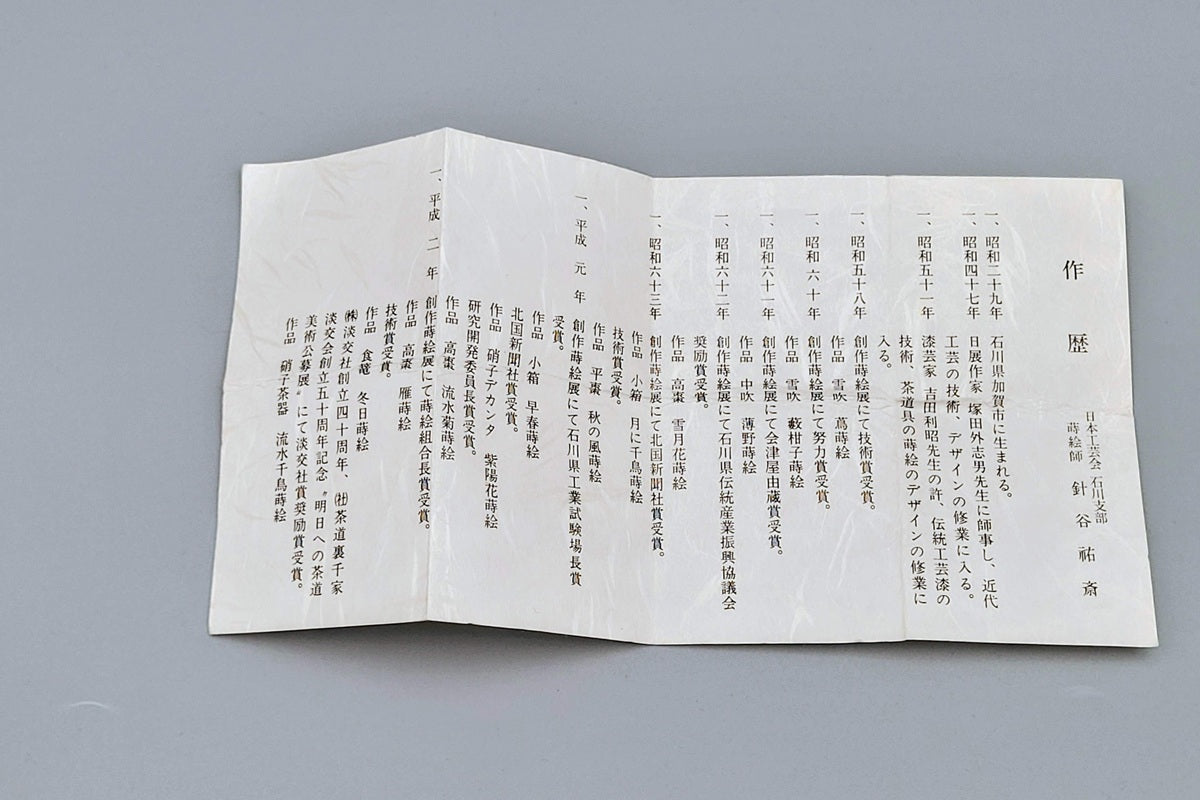 作歴
日本工芸会 石川支部
蒔絵師 針谷祐斎
一、昭和二十九年 石川県加賀市に生まれる。
一、昭和四十七年 日展作家 塚田外志男先生に師事し、近代
工芸の技術、デザインの修業に入る。
一、昭和五十一年 漆芸家 吉田利昭先生の許、伝統工芸漆の
技術、茶道具の蒔絵のデザインの修業に
入る。
一、昭和五十八年 創作蒔絵展にて技術賞受賞。
作品 雪吹 蔦蒔絵
一、昭和六十年 創作蒔絵展にて努力賞受賞。
作品 雪吹 藪柑子蒔絵
一、昭和六十一年 創作蒔絵展にて会津屋由蔵賞受賞。
作品 中吹 薄野蒔絵
一、昭和六十二年 創作蒔絵展にて石川県伝統産業振興協議会
奨励賞受賞。
作品 高棗 雪月花蒔絵
一、昭和六十三年 創作蒔絵展にて北国新聞社賞受賞。
作品 小箱 月に千鳥蒔絵
技術賞受賞。
作品 平棗 秋の風蒔絵
一、平成元年 創作蒔絵展にて石川県工業試験場長賞
受賞。
作品 小箱 早春蒔絵
北国新聞社賞受賞。
作品 硝子デカンタ 紫陽花蒔絵
研究開発委員長賞受賞。
作品 高棗 流水菊蒔絵
一、平成二年 創作蒔絵展にて蒔絵組合長賞受賞。
作品 高棗 雁蒔絵
技術賞受賞。
作品 食篭 冬日蒔絵
㈱淡交社創立四十周年、㈳茶道裏千家
淡交会創立五十周年記念〝明日への茶道
美術公募展〟にて淡交社賞奨励賞受賞。
作品 硝子茶器 流水千鳥蒔絵